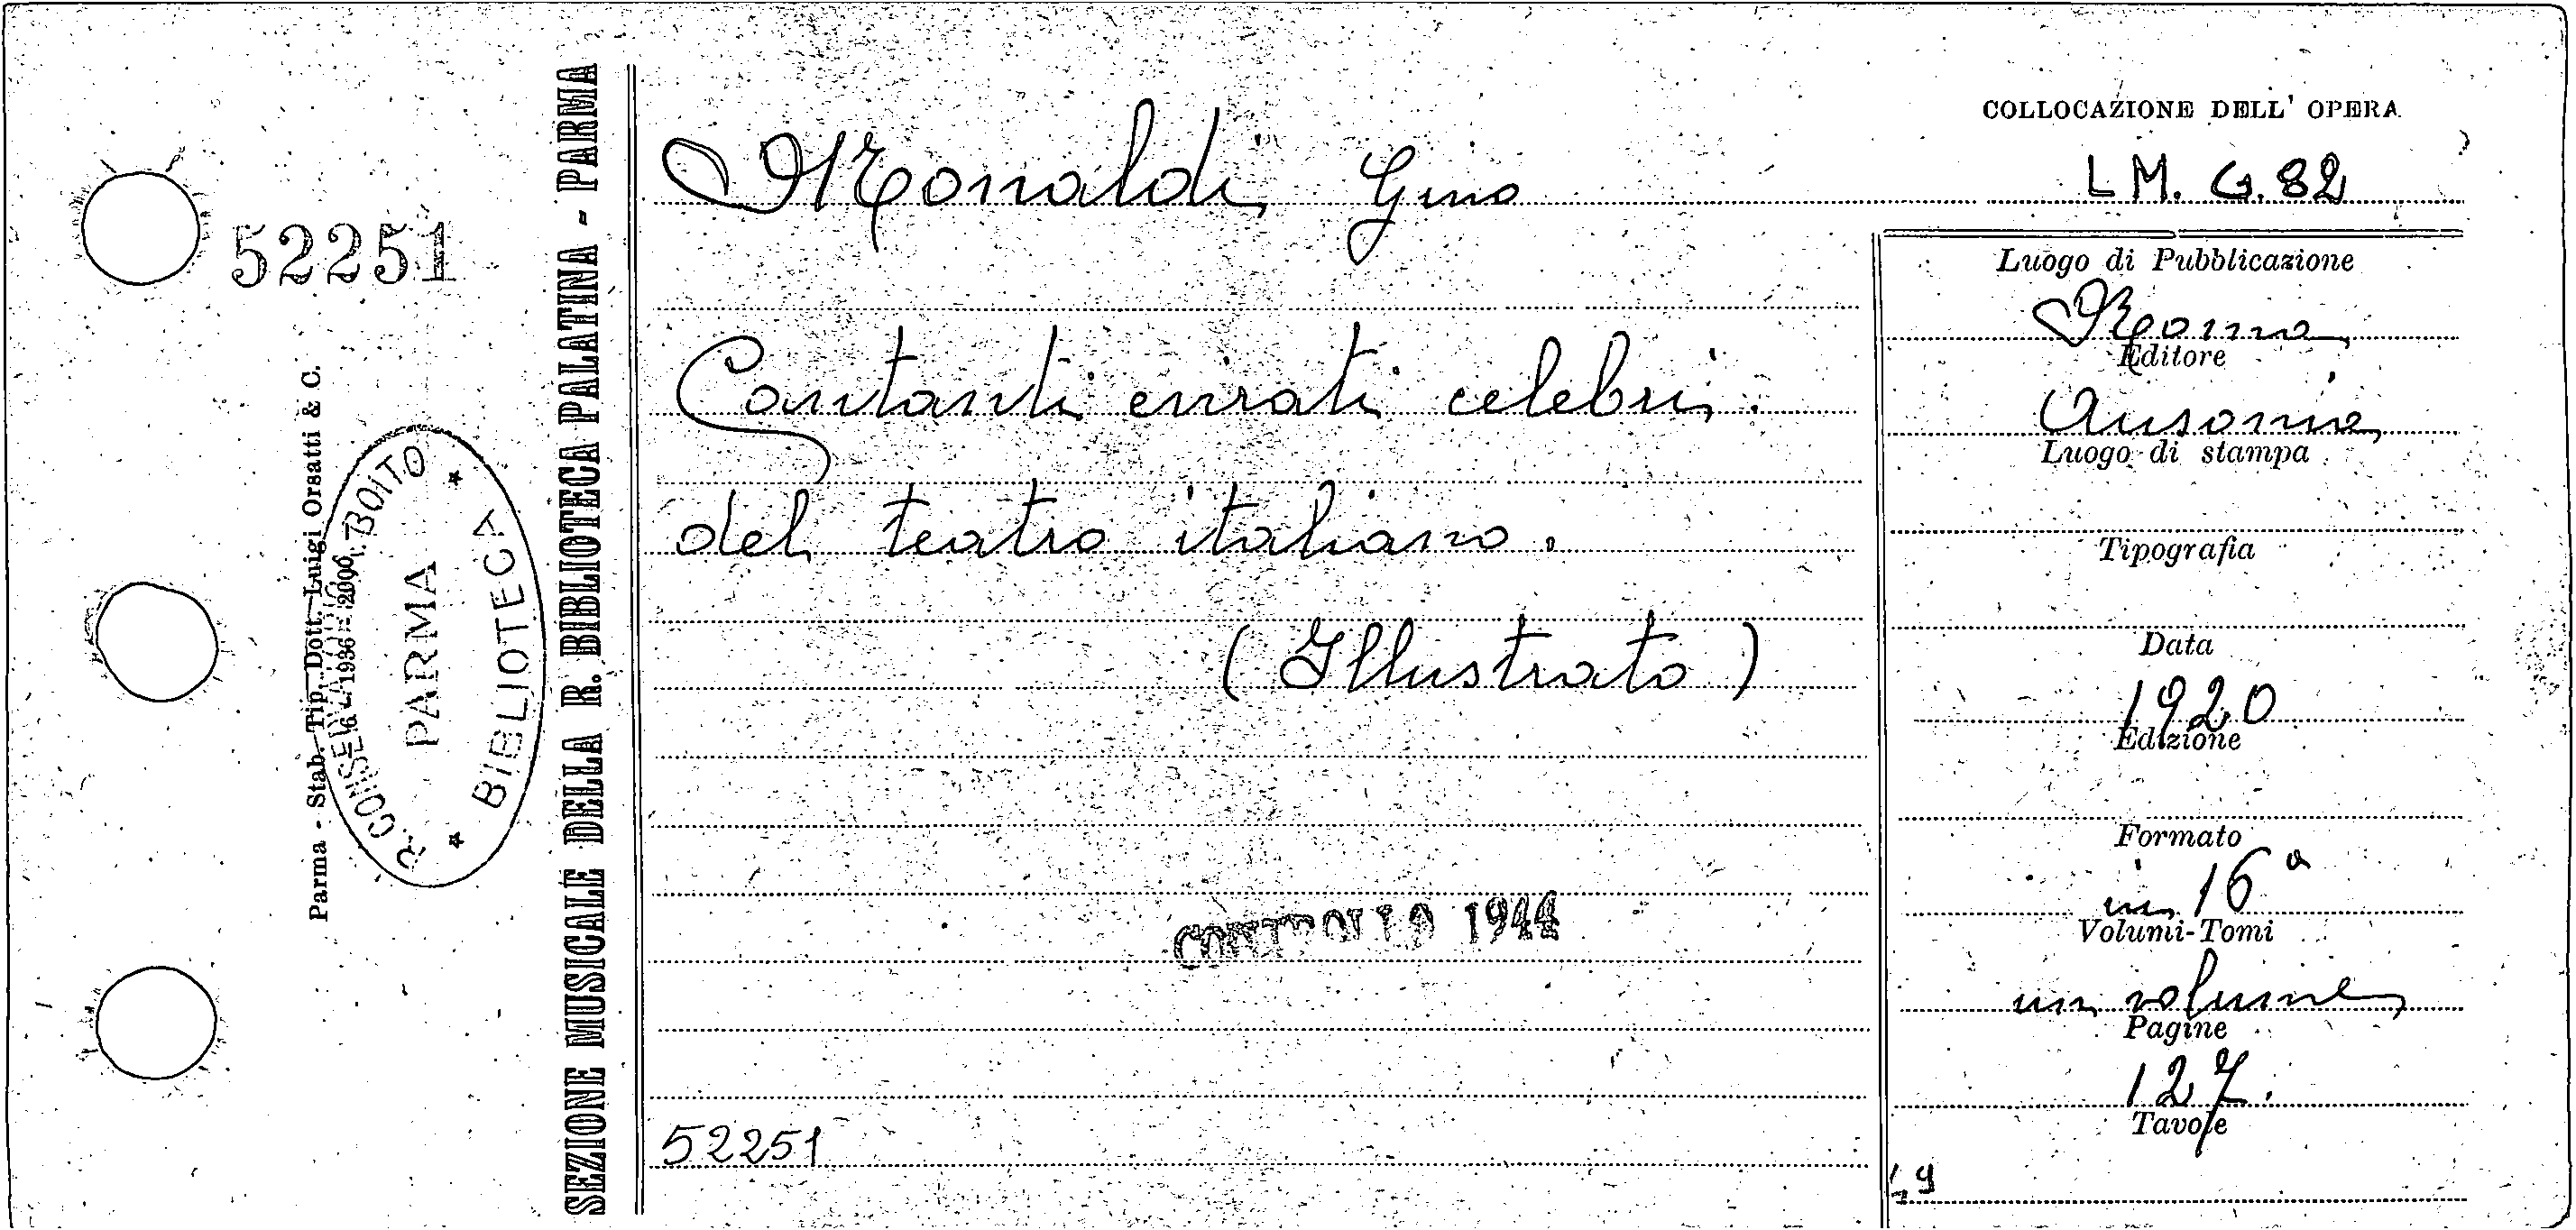 COLLOCAZIONE DELL' OPERA
Monaldi Gino
LM. G. 82
52251
Cantanti evirati celebri
del teatro italiano.
(Illustrato)
CONTROLLO 1944
52251
Luogo di Pubblicazione
Roma
Editore
Ausonia
Luogo di stampa
Tipografia
Data
1920
Edizione
Formato
in 16°
Volumi-Tomi
un volume
Pagine
127.
Tavole
SEZIONE MUSICALE DELLA R. BIBLIOTECA PALATINA - PARMA
Parma - Stab. Tip. Dott. Luigi Orsatti & C.
1936 - 2000
R. CONSERVATORIO A. BOITO
PARMA
BIBLIOTECA